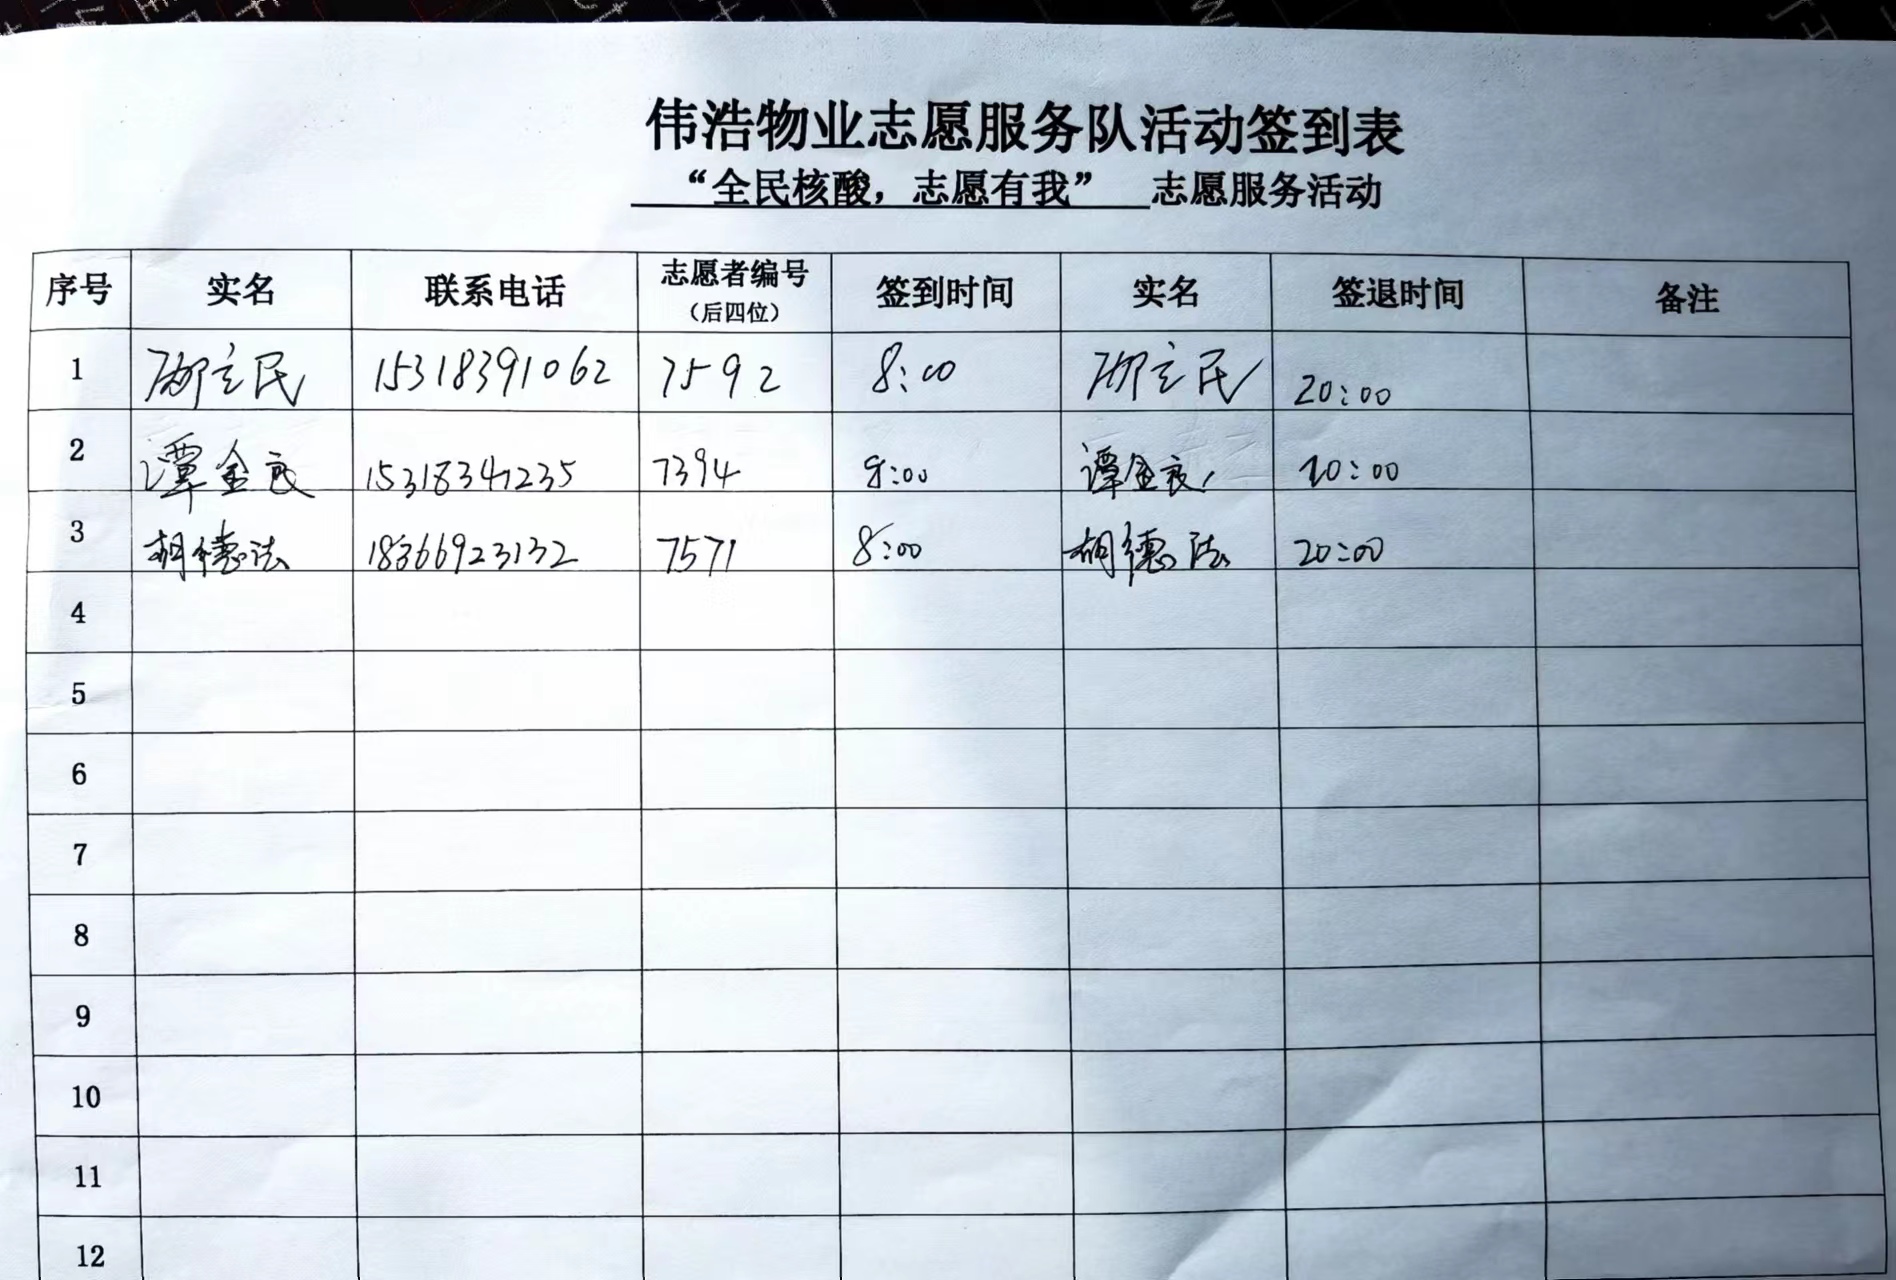 伟浩物业志愿服务队活动签到表
“全民核酸，志愿有我” 志愿服务活动
序号 实名 联系电话 志愿者编号（后四位） 签到时间 实名 签退时间 备注
1 立民 15318391062 7592 8:00 立民 20:00
2 谭金良 15318341235 7394 8:00 谭金良 20:00
3 胡德法 18366923132 7571 8:00 胡德法 20:00
4
5
6
7
8
9
10
11
12